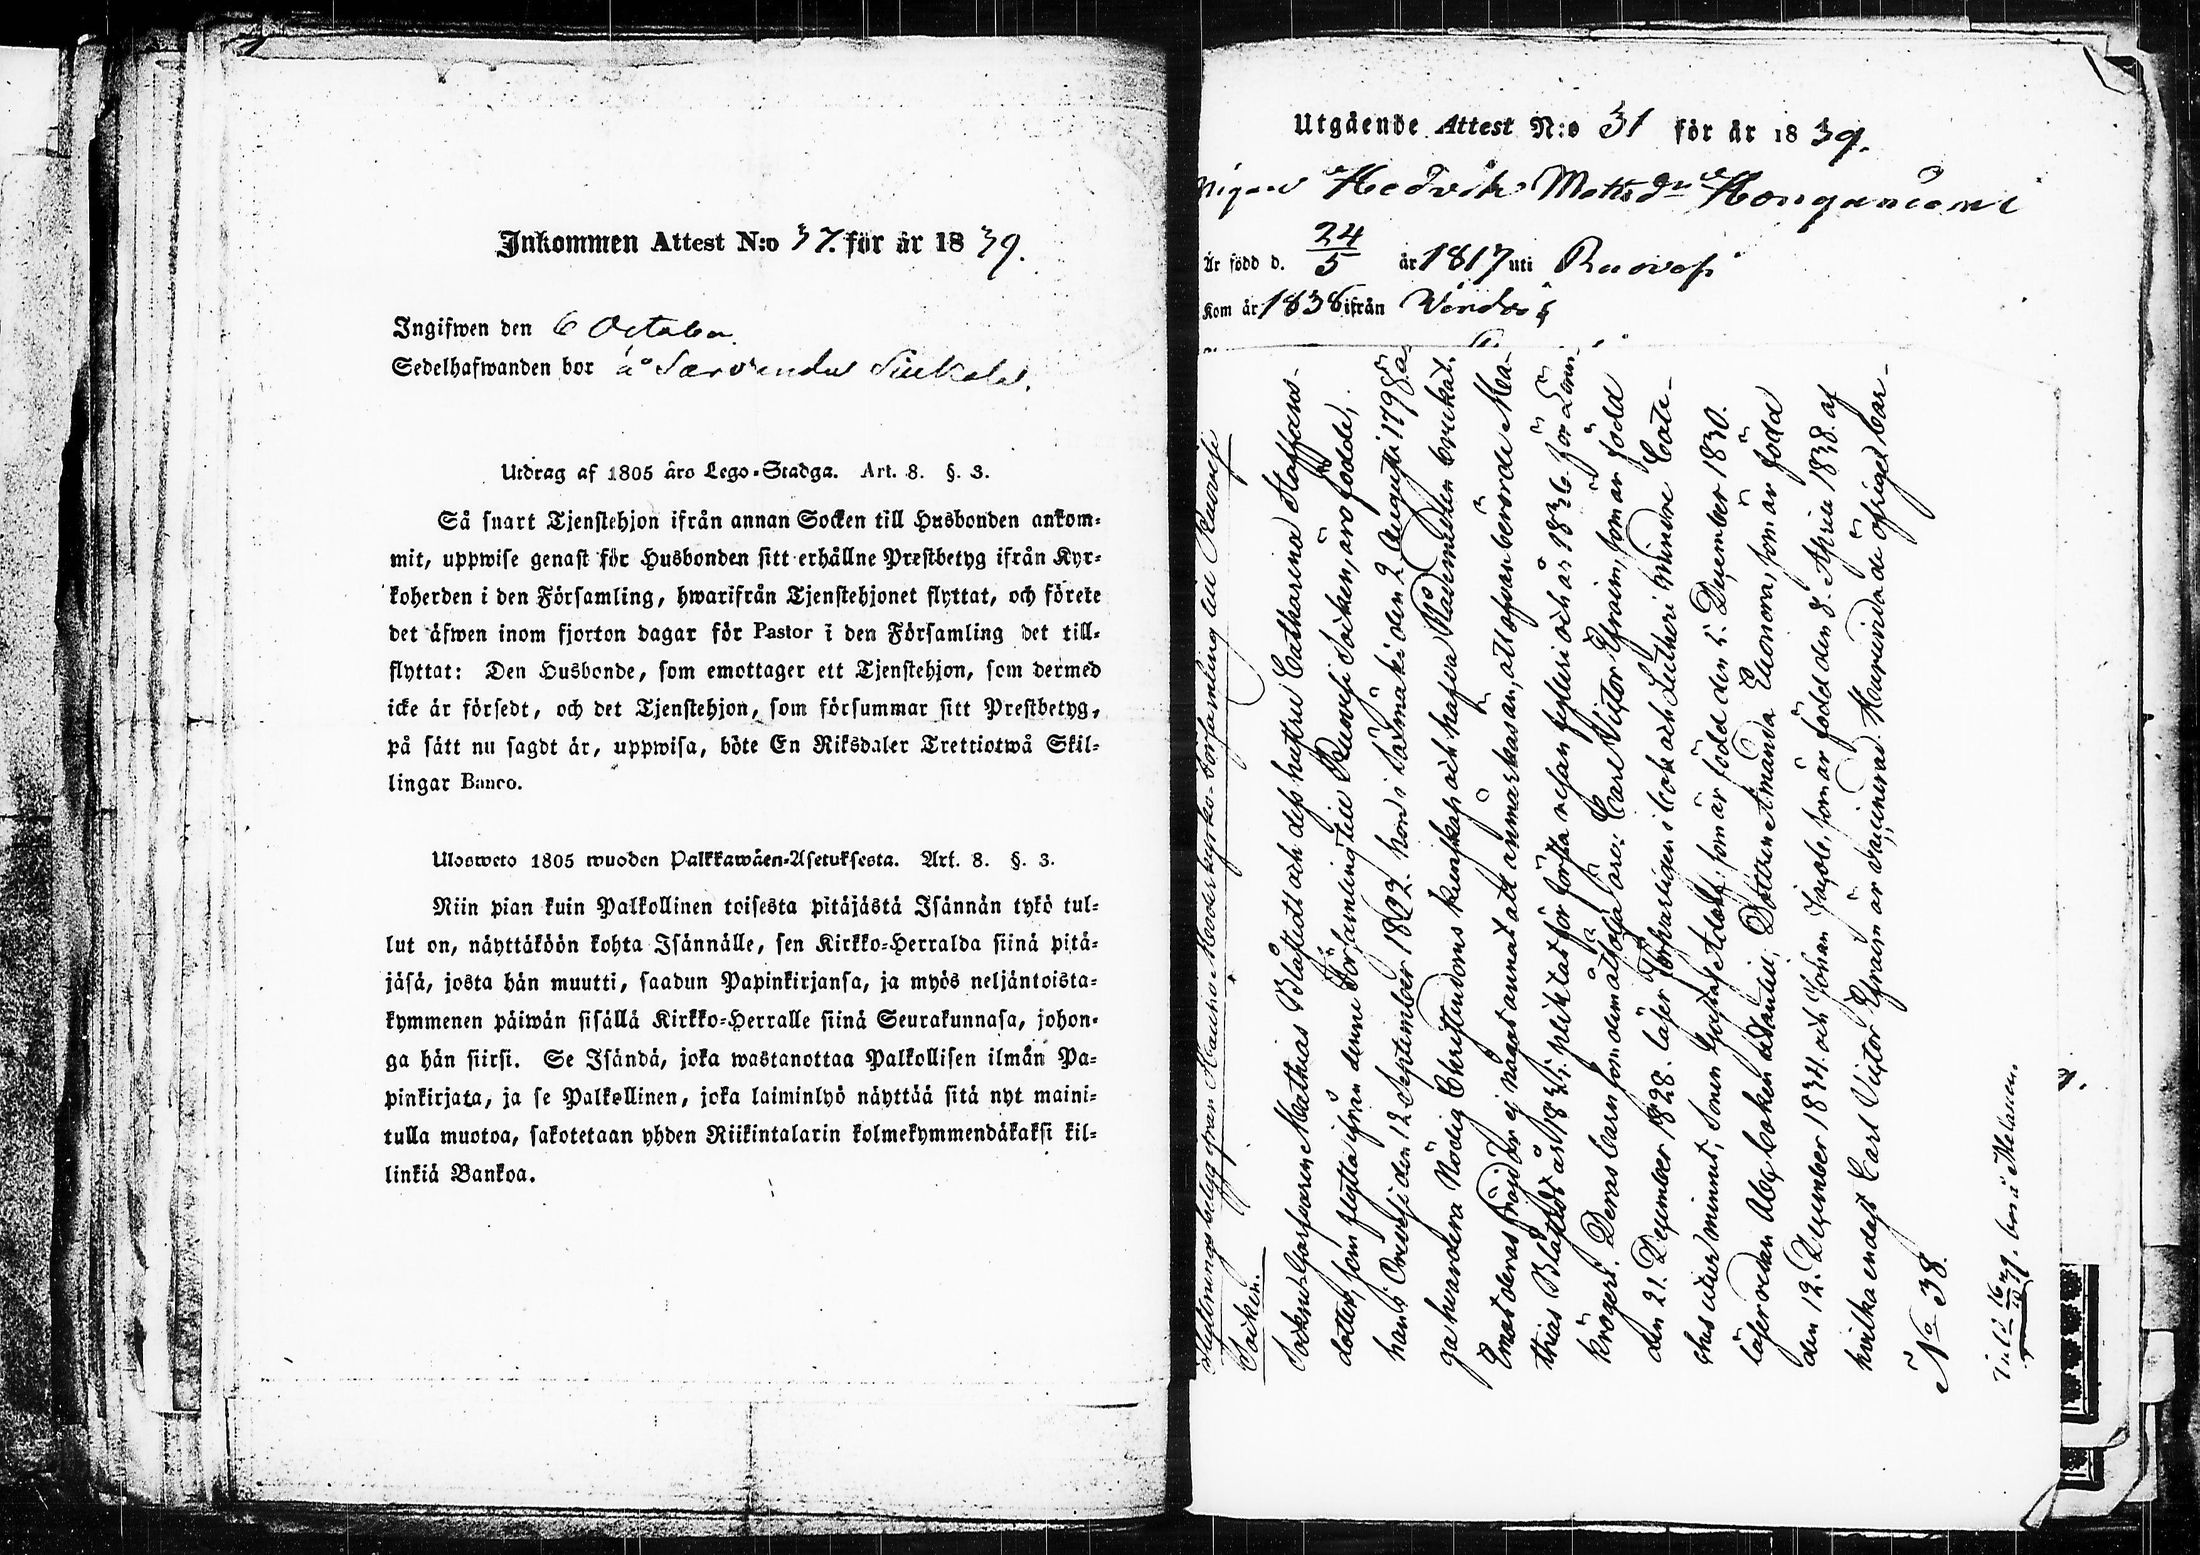 Inkommen Attest N:o 37. för år 1839.
Ingifwen den 6 October
Sedelhafwanden bor å Särvindus Siukola.
Utdrag af 1805 års Lego-Stadga. Art. 8. §. 3.
Så snart Tjenstehjon ifrån annan Socken till Husbonden ankom-
mit, uppwise genast för Husbonden sitt erhållne Prestbetyg ifrån Kyr-
koherden i den Församling, hwarifrån Tjenstehjonet flyttat, och förete
det äfwen inom fjorton dagar för Pastor i den Församling det till-
flyttat: Den Husbonde, som emottager ett Tjenstehjon, som dermed
icke är försedt, och det Tjenstehjon, som försummar sitt Prestbetyg,
på sätt nu sagdt är, uppwisa, böte En Riksdaler Trettiotwå Skil-
lingar Banco.
Ulosweto 1805 wuoden Palkkawäen-Asetuksesta. Art. 8. §. 3.
Niin pian kuin Palkollinen toisesta pitäjästä Isännän tykö tul-
lut on, näyttäköön kohta Isännälle, sen Kirkko-Herralda siinä pitä-
jäsä, josta hän muutti, saadun Papinkirjansa, ja myös neljäntoista-
kymmenen päiwän sisällä Kirkko-Herralle siinä Seurakunnasa, johon-
ga hän siirsi. Se Isändä, joka wastanottaa Palkollisen ilman Pa-
pinkirjata, ja se Palkollinen, joka laiminlyö näyttää sitä nyt maini-
tulla muotoa, sakotetaan yhden Riikintalarin kolmekymmendäkaksi kil-
linkiä Bankoa.
Utgående Attest N:o 31 för år 1839.
Pigan Hedvik Mattsdr Honganiemi
Är född d. 24/5 år 1817 uti Ruovesi
Kom år 1836 ifrån Virdois
Flyttningsbetyg ifrån Hauho Moderkyrko-Församling till Ruovesi
Socken.
Sockne Garfvaren Mathias Blåfjedt och dess hustru Catharina Staffans-
dotter, som flytta ifrån denne Församling till Ruovesi Socken, äro födde,
han i Orivesi den 12 September 1802. hon i Sahmaki den 2 Augusti 1798. ä-
ga hvardera Nödig Christendoms kunskap och hafva H. Nattvarden brukat.
Emot deras frejd bör ej något annat att anmärkas än, att ofvanberörde Ma-
thias Blåfjedt år 1834. pliktat för första resan fylleri och år 1836 för Lönn-
krögeri. Deras barn som dem åtfölja äro: Carl Victor Efraim, som är född
den 21. December 1828. läser Försvarligen i bok och Lutheri mindre Cate-
ches utur minnet; Sonen Gustaf Adolf, som är född den 5. December 1830.
läser redan Abc boken ordantlig; Dottren Amanda Eleonora, som är född
den 12. December 1834. och Johan Jacob, som är född den 8. April 1838. af
hvilka endast Carl Victor Efraim är vaccinerad. Hauho
No 38.
bor å